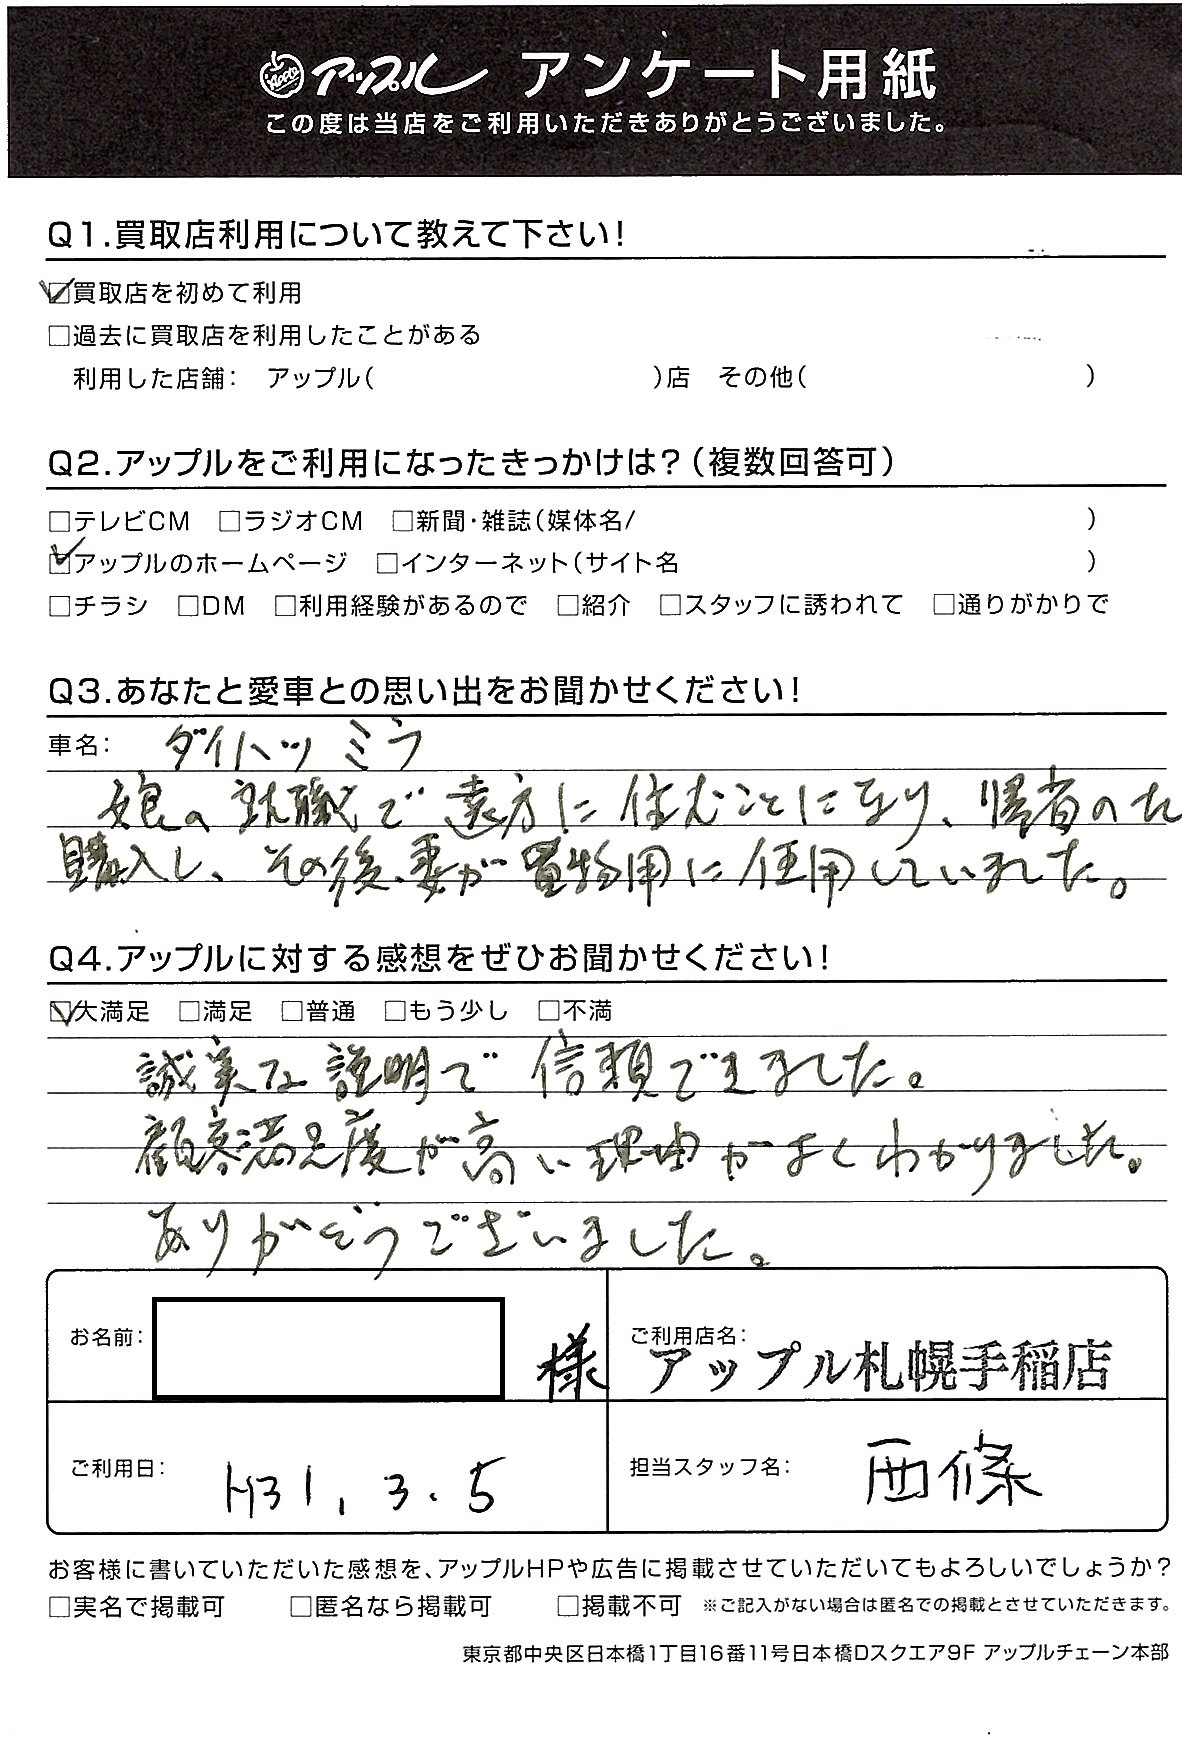 Apple アップル アンケート用紙
この度は当店をご利用いただきありがとうございました。
Q1.買取店利用について教えて下さい!
☑買取店を初めて利用
□過去に買取店を利用したことがある
利用した店舗: アップル( )店 その他( )
Q2.アップルをご利用になったきっかけは?(複数回答可)
□テレビCM □ラジオCM □新聞・雑誌(媒体名/ )
☑アップルのホームページ □インターネット(サイト名 )
□チラシ □DM □利用経験があるので □紹介 □スタッフに誘われて □通りがかりで
Q3.あなたと愛車との思い出をお聞かせください!
車名: ダイハツ ミラ
娘の就職で遠方に住むことになり、帰省のため
購入し、その後、妻が買物用に使用していました。
Q4.アップルに対する感想をぜひお聞かせください!
☑大満足 □満足 □普通 □もう少し □不満
誠実な説明で信頼できました。
顧客満足度が高い理由がよくわかりました。
ありがとうございました。
お名前: 様 ご利用店名: アップル札幌手稲店
ご利用日: H31.3.5 担当スタッフ名: 西條
お客様に書いていただいた感想を、アップルHPや広告に掲載させていただいてもよろしいでしょうか?
□実名で掲載可 □匿名なら掲載可 □掲載不可 ※ご記入がない場合は匿名での掲載とさせていただきます。
東京都中央区日本橋1丁目16番11号日本橋Dスクエア9F アップルチェーン本部